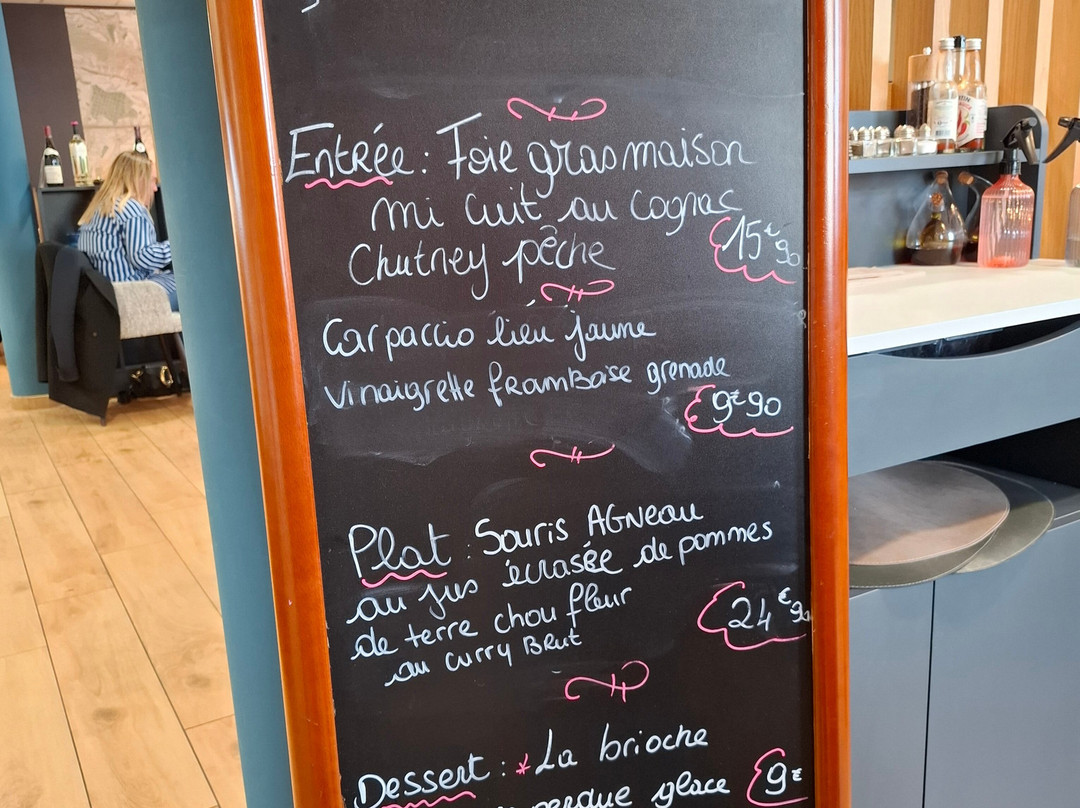 Entrée : Foie gras maison
mi cuit au cognac
Chutney pêche 15€90
Carpaccio lieu jaune
Vinaigrette framboise grenade
9€90
Plat : Souris Agneau
au jus écrasée de pommes
de terre chou fleur
au curry Brut
24€90
Dessert : * La brioche
perdue glace 9€